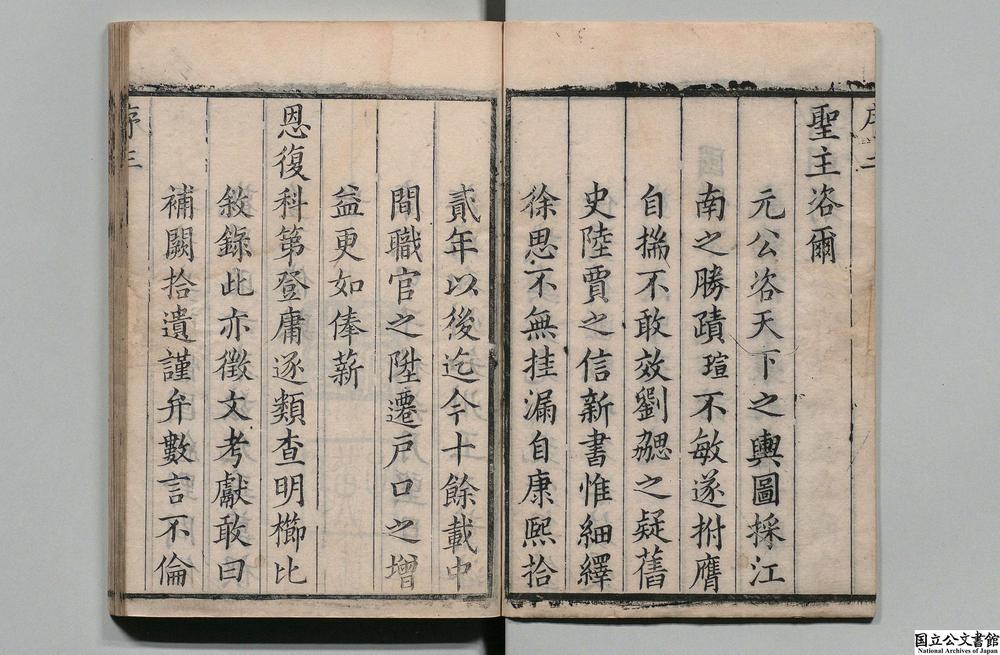 序二
聖主咨爾
元公咨天下之輿圖採江
南之勝蹟瑄不敏遂拊膺
自揣不敢效劉勰之疑舊
史陸賈之信新書惟細繹
徐思不無挂漏自康熙拾
貳年以後迄今十餘載中
間職官之陞遷戸口之增
益更如俸薪
恩復科第登庸逐類查明櫛比
敘錄此亦徵文考獻敢曰
補闕拾遺謹弁數言不倫
序三
国立公文書館
National Archives of Japan